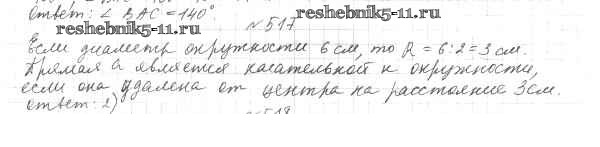 Ответ: ∠ BAC = 140°.
reshebnik5-11.ru
reshebnik5-11.ru
№ 517
Если диаметр окружности 6 см, то R = 6:2 = 3 см.
Прямая a является касательной к окружности,
если она удалена от центра на расстояние 3 см.
Ответ: 2)
№ 518